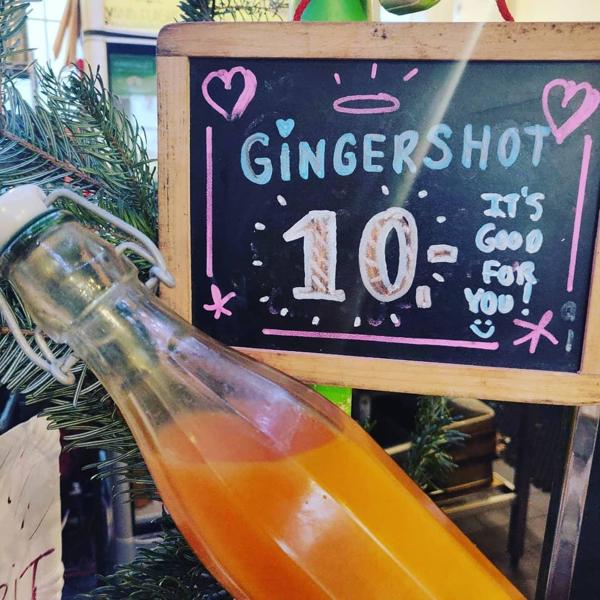 GINGERSHOT
10,-
IT'S
GOOD
FOR
YOU!